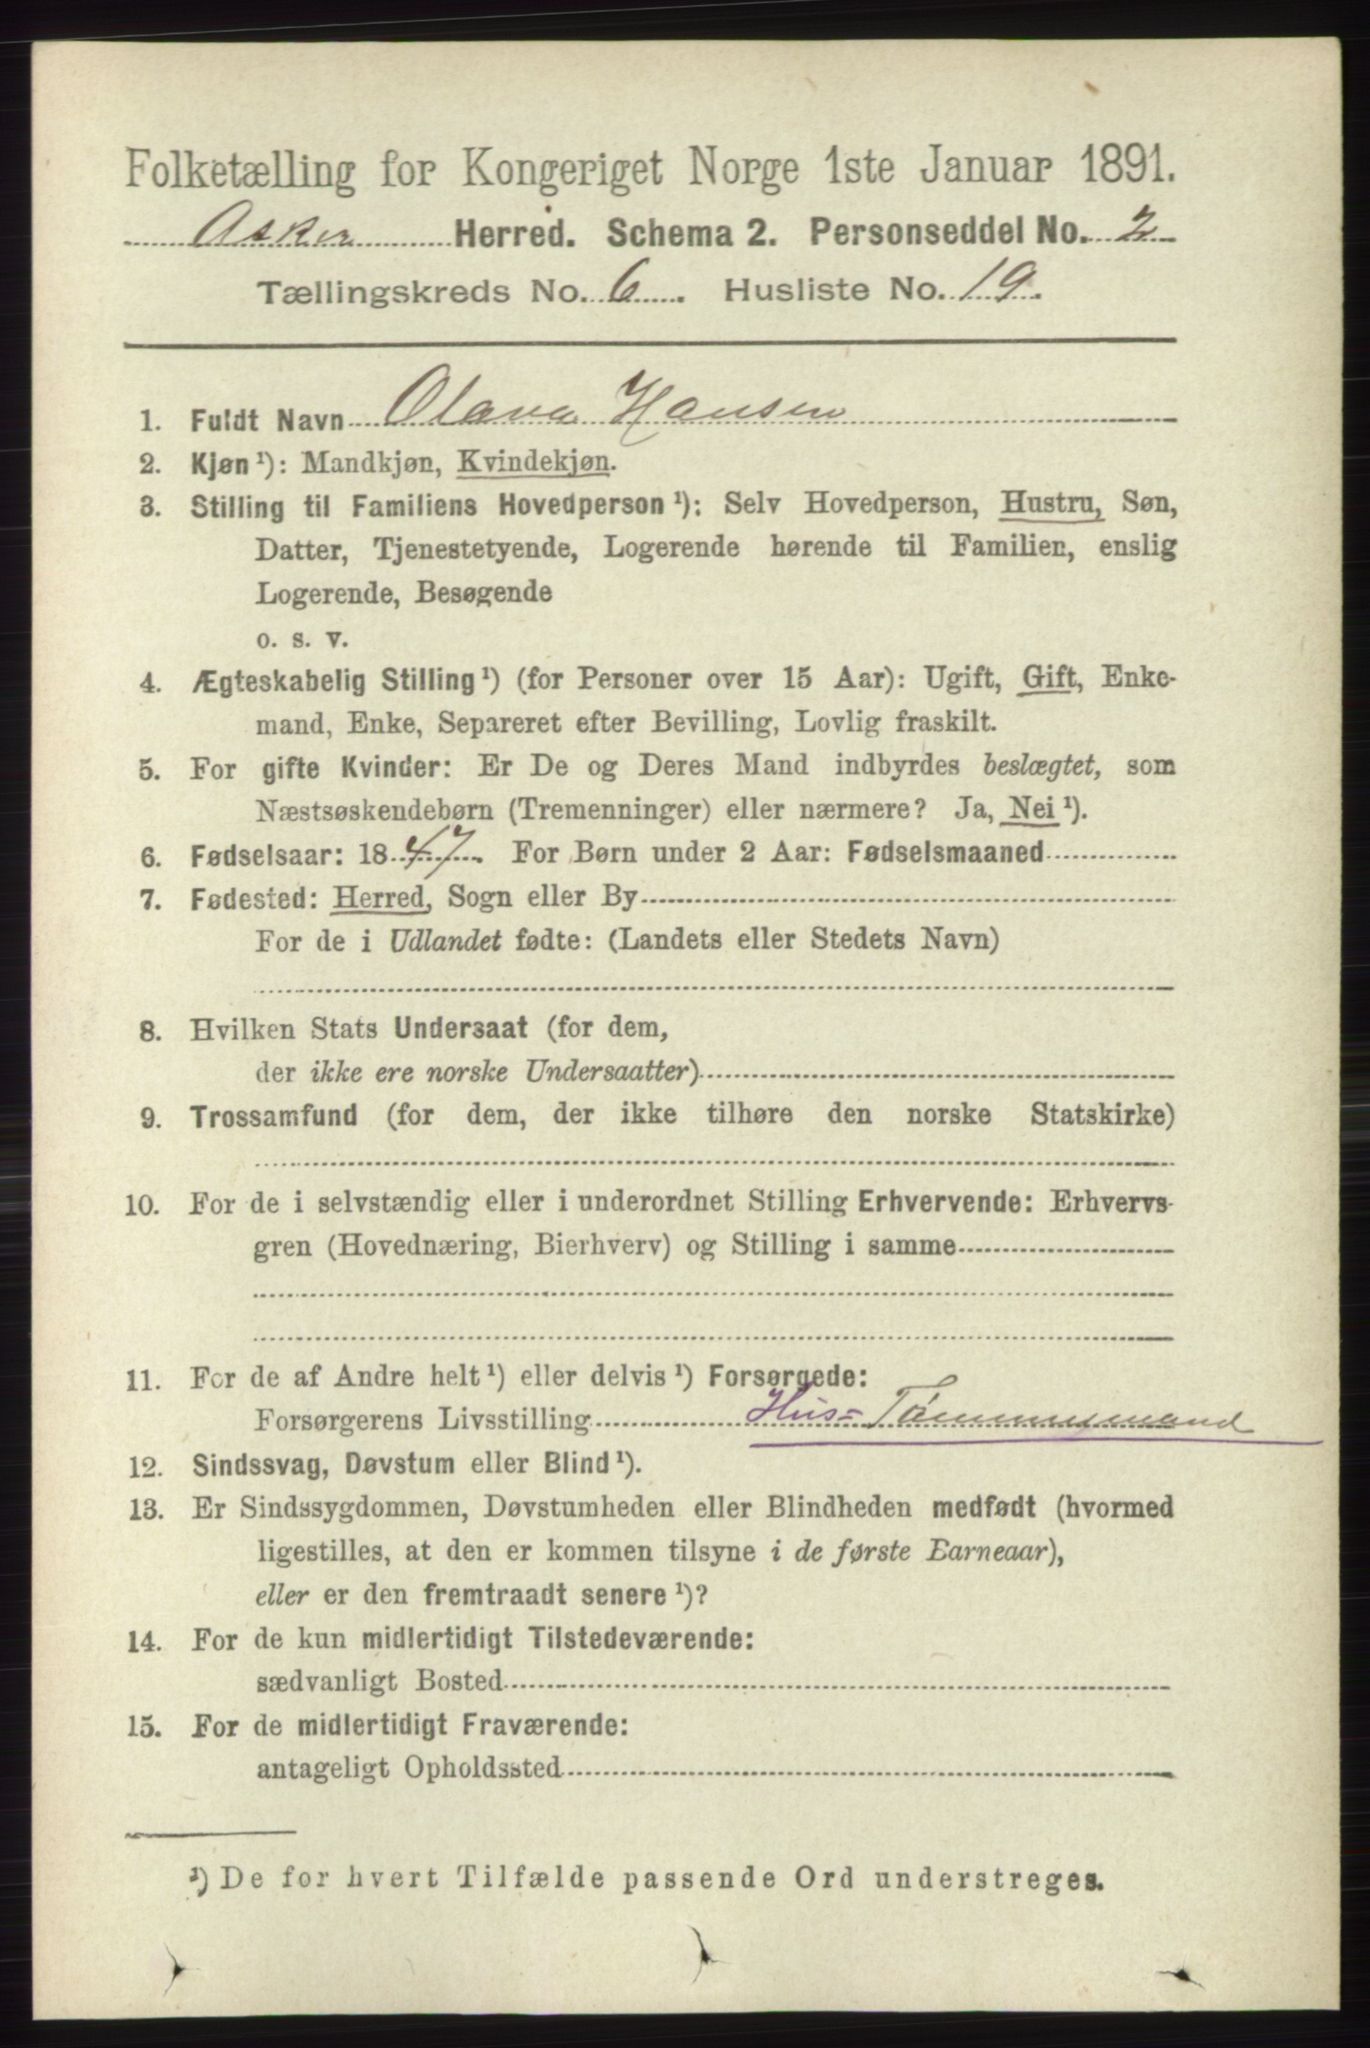 Folketælling for Kongeriget Norge 1ste Januar 1891.
Asker Herred. Schema 2. Personseddel No. 2
Tællingskreds No. 6. Husliste No. 19.
1. Fuldt Navn Olava Hansen
2. Kjøn ¹): Mandkjøn, Kvindekjøn.
3. Stilling til Familiens Hovedperson ¹): Selv Hovedperson, Hustru, Søn,
Datter, Tjenestetyende, Logerende hørende til Familien, enslig
Logerende, Besøgende
o. s. v.
4. Ægteskabelig Stilling ¹) (for Personer over 15 Aar): Ugift, Gift, Enke-
mand, Enke, Separeret efter Bevilling, Lovlig fraskilt.
5. For gifte Kvinder: Er De og Deres Mand indbyrdes beslægtet, som
Næstsøskendebørn (Tremenninger) eller nærmere? Ja, Nei ¹).
6. Fødselsaar: 1847. For Børn under 2 Aar: Fødselsmaaned
7. Fødested: Herred, Sogn eller By
For de i Udlandet fødte: (Landets eller Stedets Navn)
8. Hvilken Stats Undersaat (for dem,
der ikke ere norske Undersaatter)
9. Trossamfund (for dem, der ikke tilhøre den norske Statskirke)
10. For de i selvstændig eller i underordnet Stilling Erhvervende: Erhvervs-
gren (Hovednæring, Bierhverv) og Stilling i samme
11. For de af Andre helt ¹) eller delvis ¹) Forsørgede:
Forsørgerens Livsstilling Hus= Tømmermand
12. Sindssvag, Døvstum eller Blind ¹).
13. Er Sindssygdommen, Døvstumheden eller Blindheden medfødt (hvormed
ligestilles, at den er kommen tilsyne i de første Barneaar),
eller er den fremtraadt senere ¹)?
14. For de kun midlertidigt Tilstedeværende:
sædvanligt Bosted
15. For de midlertidigt Fraværende:
antageligt Opholdssted
¹) De for hvert Tilfælde passende Ord understreges.